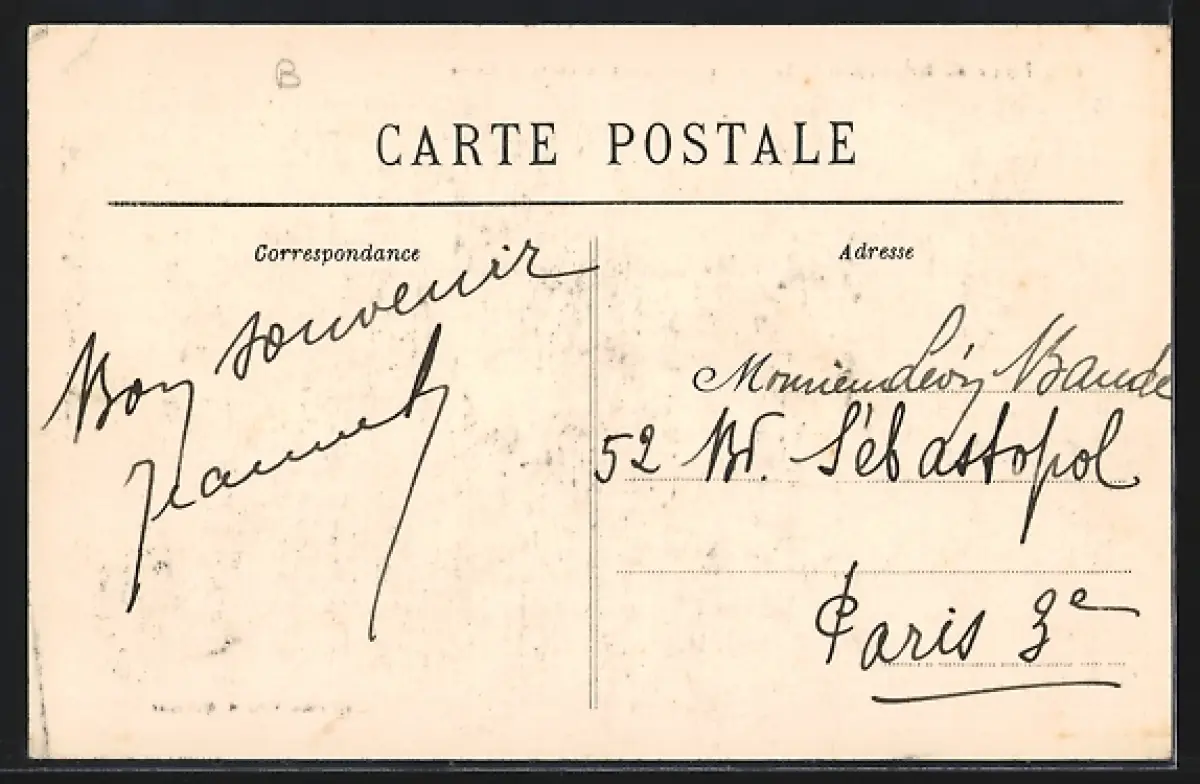 B
CARTE POSTALE
Correspondance
Adresse
Bon souvenir
Jeannet
Monsieur Lévy
52 Bd. Sébastopol
Paris 3e